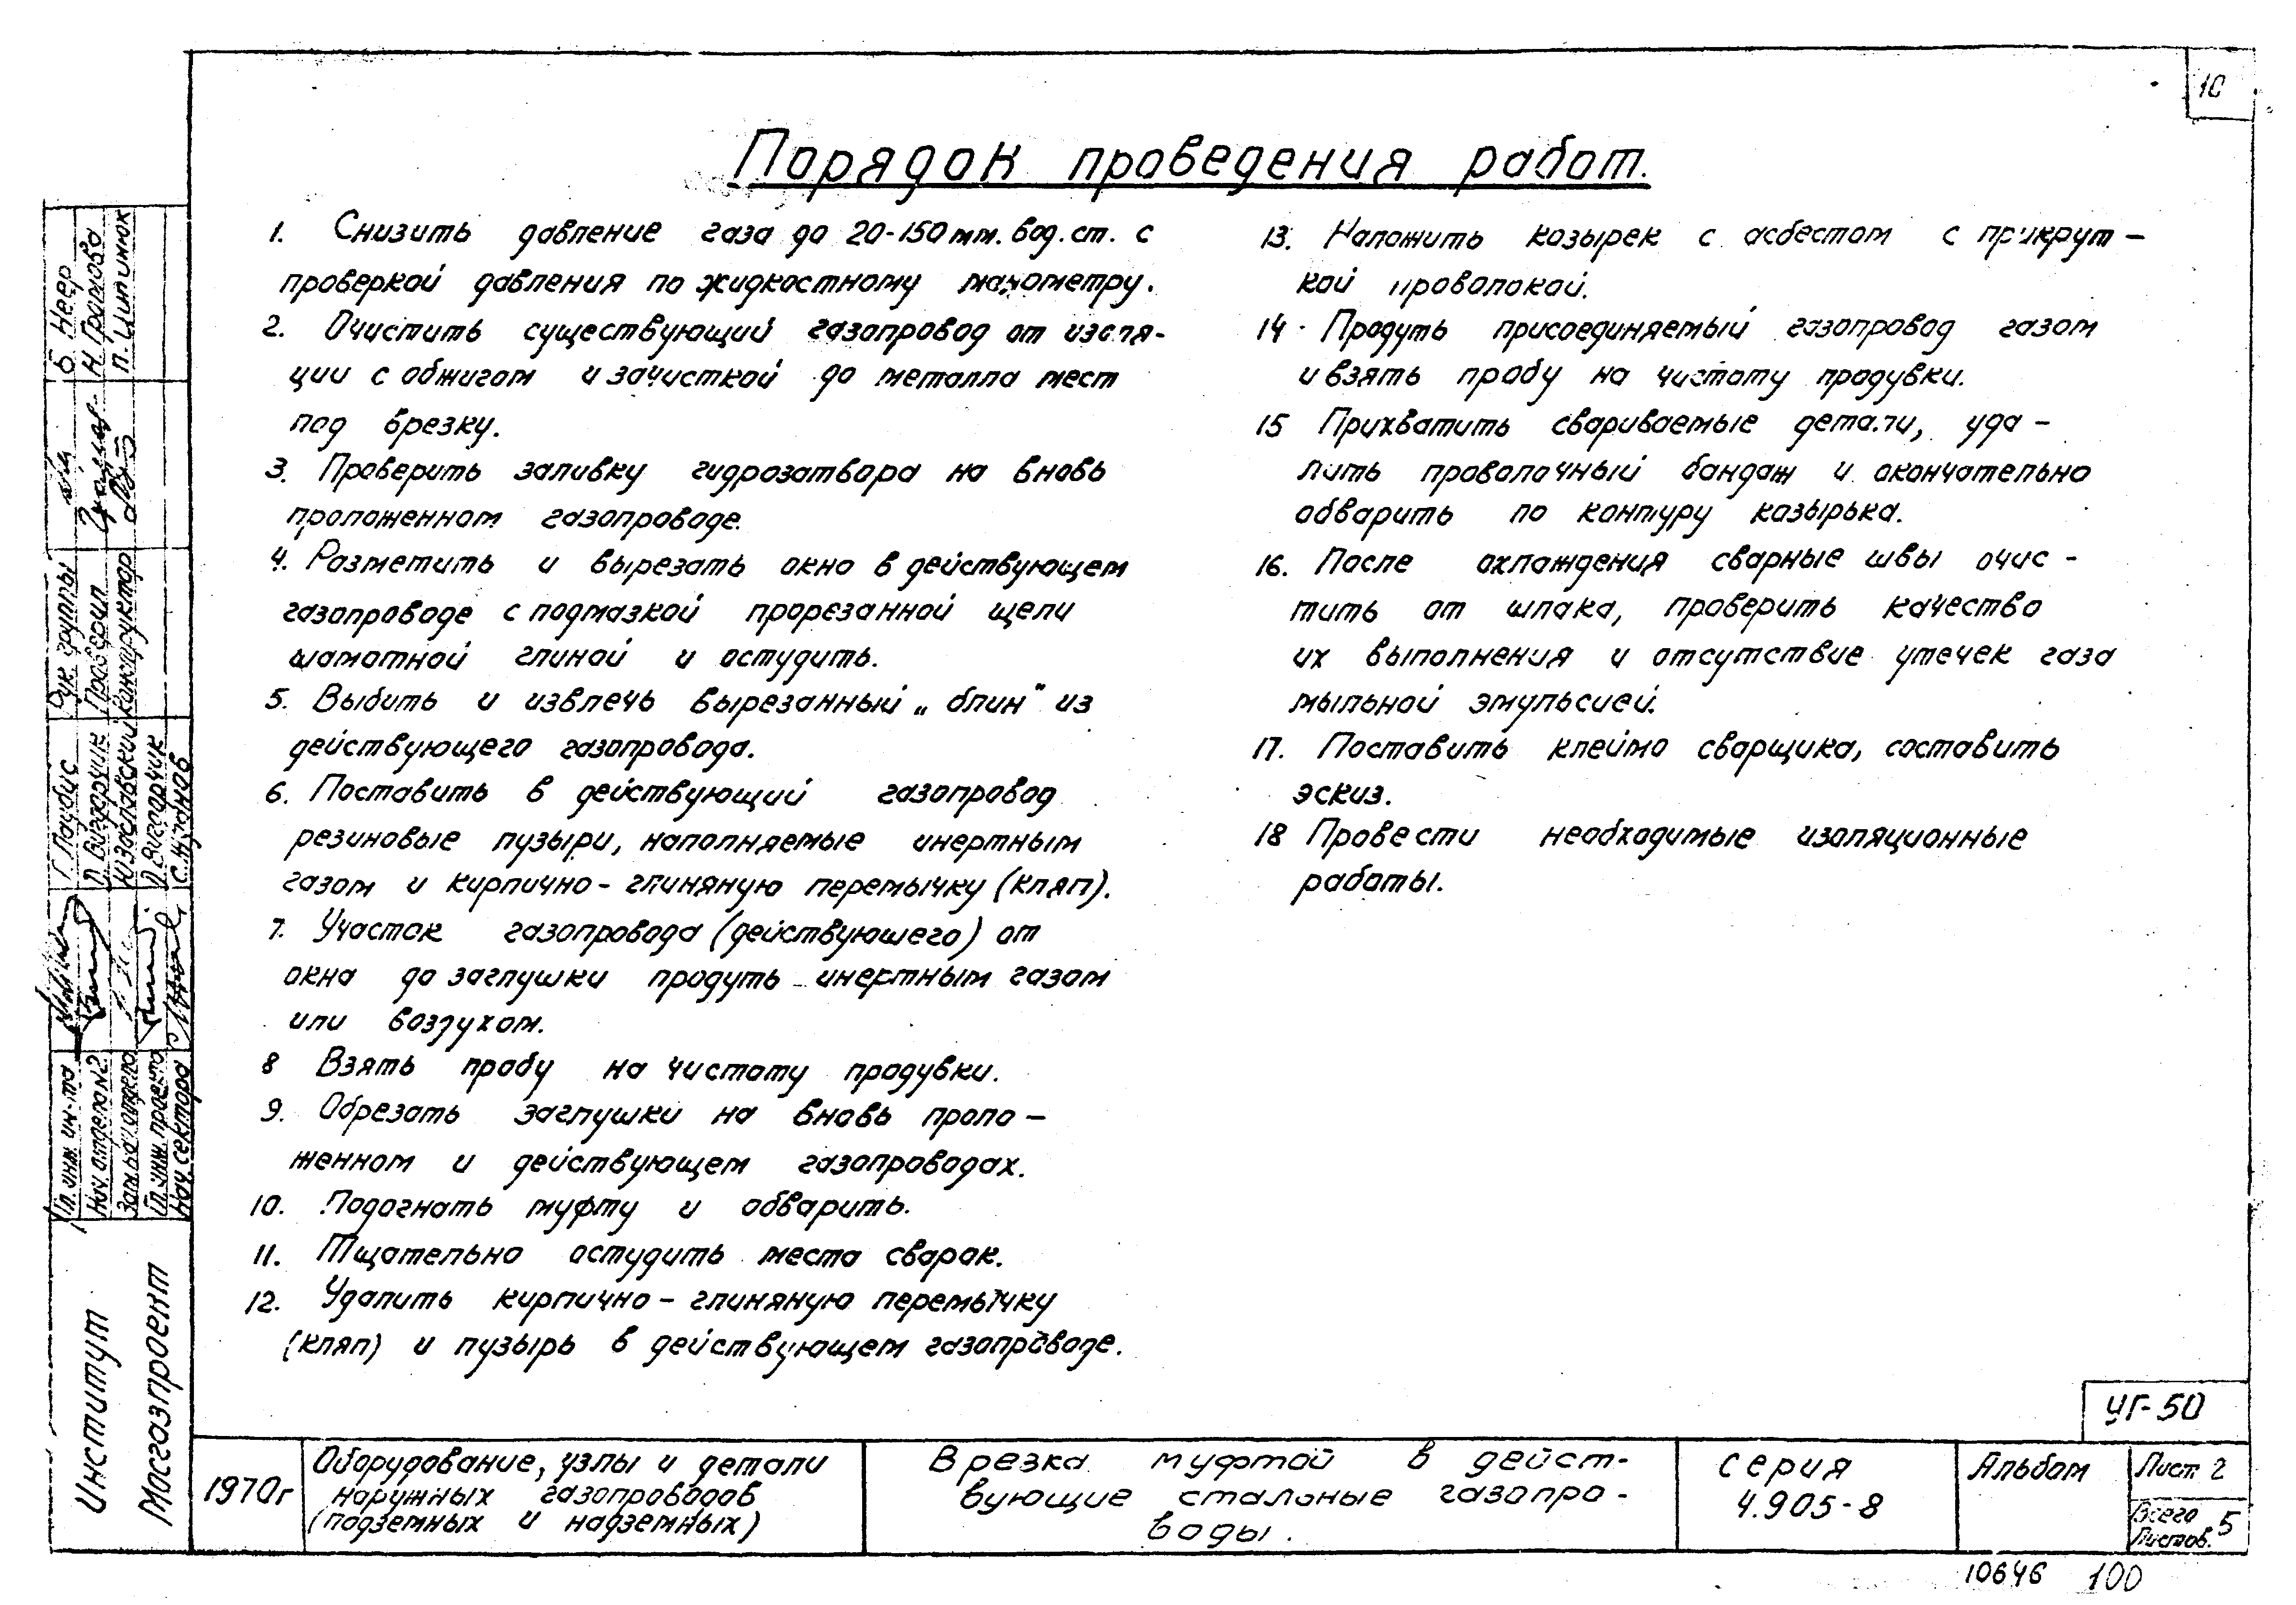 10
Порядок проведения работ.
1. Снизить давление газа до 20-150 мм. вод. ст. с
проверкой давления по жидкостному манометру.
2. Очистить существующий газопровод от изоля-
ции с обжигом и зачисткой до металла мест
под врезку.
3. Проверить заливку гидрозатвора на вновь
проложенном газопроводе.
4. Разметить и вырезать окно в действующем
газопроводе с подмазкой прорезанной щели
шамотной глиной и остудить.
5. Выбить и извлечь вырезанный „блин" из
действующего газопровода.
6. Поставить в действующий газопровод
резиновые пузыри, наполняемые инертным
газом и кирпично-глиняную перемычку (кляп).
7. Участок газопровода (действующего) от
окна до заглушки продуть инертным газом
или воздухом.
8 Взять пробу на чистоту продувки.
9. Обрезать заглушки на вновь проло-
женном и действующем газопроводах.
10. Подогнать муфту и обварить.
11. Тщательно остудить места сварок.
12. Удалить кирпично-глиняную перемычку
(кляп) и пузырь в действующем газопроводе.
13. Наложить козырек с асбестом с прикрут-
кой проволокой.
14. Продуть присоединяемый газопровод газом
и взять пробу на чистоту продувки.
15 Прихватить свариваемые детали, уда-
лить проволочный бандаж и окончательно
обварить по контуру козырька.
16. После охлаждения сварные швы очис-
тить от шлака, проверить качество
их выполнения и отсутствие утечек газа
мыльной эмульсией.
17. Поставить клеймо сварщика, составить
эскиз.
18 Провести необходимые изоляционные
работы.
Б. Неер
Н. Громова
П. Шипинюк
Рук. группы
Проверил
Конструктор
Г. Лаубис
Д. Вигдорчик
Ю. Заславский
Д. Вигдорчик
С. Жуданов
Гл. инж. ин-та
Нач. отдела №2
Зам. нач. отдела
Гл. инж. проекта
Нач. сектора
Институт
Мосгазпроект
УГ-50
1970г
Оборудование, узлы и детали
наружных газопроводов
(подземных и надземных)
Врезка муфтой в дейст-
вующие стальные газопро-
воды.
серия
4.905-8
Альбом
Лист 2
Всего
Листов. 5
10646 100